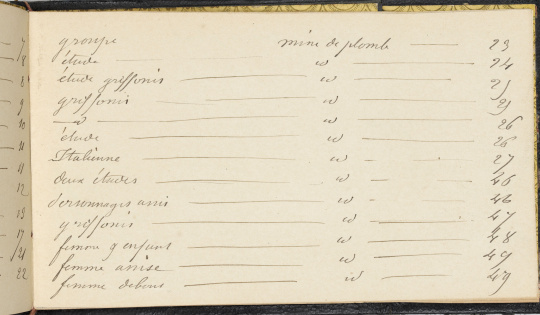 7 groupe mine de plomb 23
8 étude id 24
8 étude griffonis id 25
9 griffonis id 25
10 id id 26
11 étude id 26
11 Italienne id 27
12 deux études id 46
personnages assis id 46
13 griffonis id 47
17 femme & enfant id 48
21 femme assise id 49
22 femme debout id 49